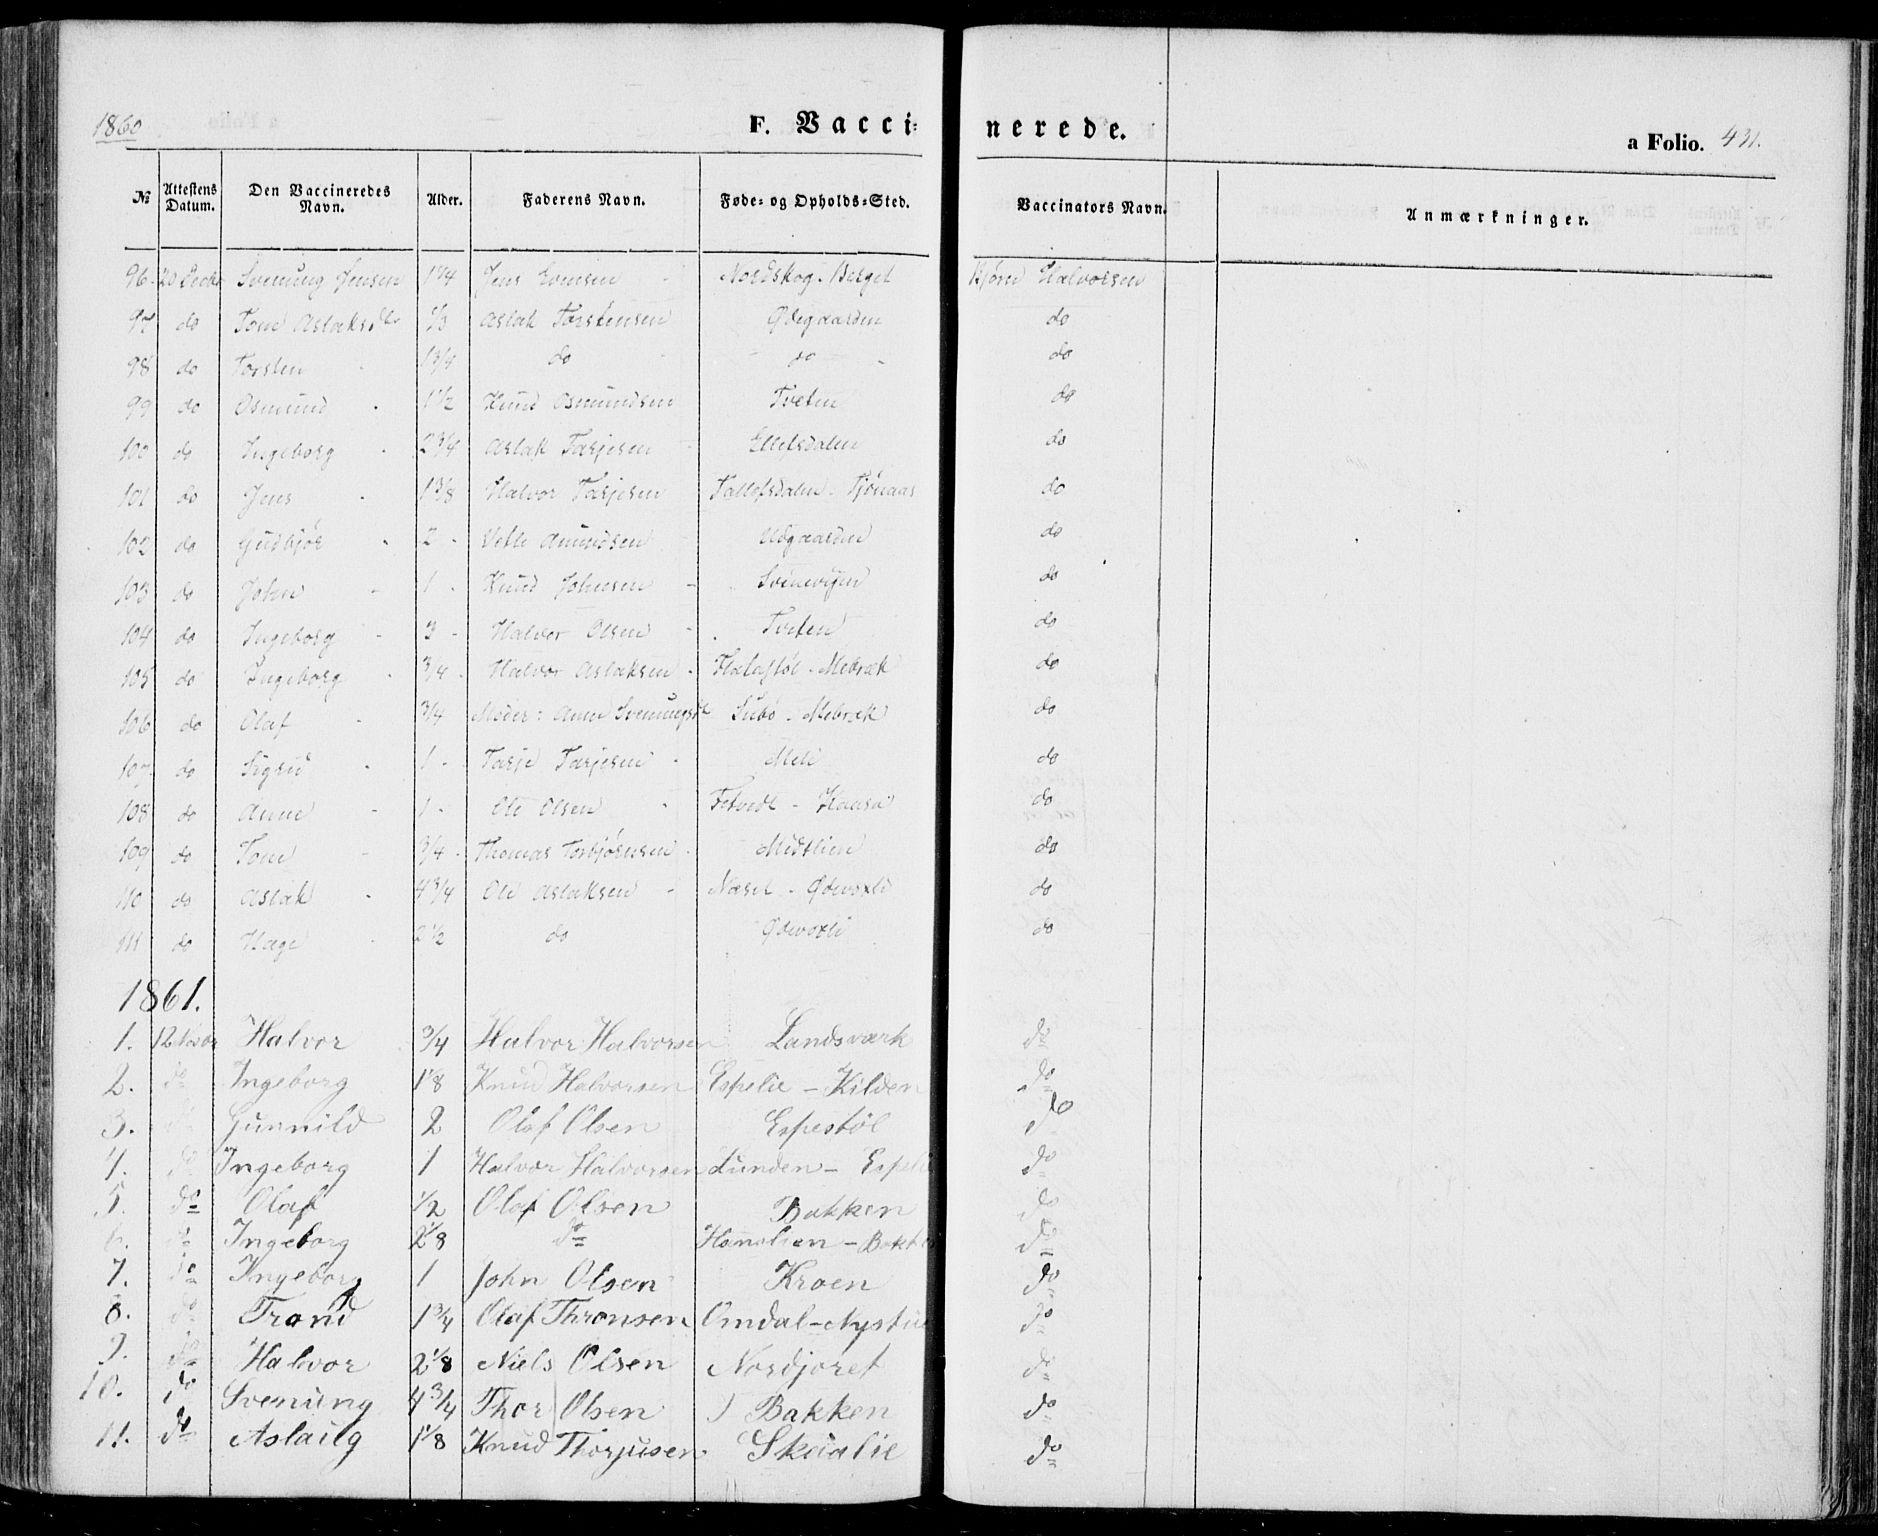 1860
F. Vacci-
nerede.
a Folio. 431.
№ Attestens Datum. Den Vaccineredes Navn. Alder. Faderens Navn. Føde- og Opholds-Sted. Vaccinators Navn. Anmærkninger.
96 20 Decbr Svenung Jensen 1 1/4 Jens Evensen Nordskog - Berget Bjørn Halvorsen
97 do Tone Aslaksdtr 1/3 Aslak Torstensen Ødegaarden do
98 do Torsten 1 3/4 do do do
99 do Osmund 1 1/2 Knud Osmundsen Tveten do
100 do Ingeborg 2 3/4 Aslak Tarjesen Ellefsdalen do
101 do Jens 1 3/8 Halvor Tarjesen Tallefsdalen - Tjønaas do
102 do Gudbjør 2 Vetle Amundsen do
103 do John 1 Knud Johnsen do
104 do Ingeborg 3 Halvor Olsen Tveten do
105 do Ingeborg 3/4 Halvor Aslaksen - Mebræk do
106 do Olaf 3/4 Moder: Anne Svenungsdt - Mebræk do
107 do Sigrid 1 Tarje Tarjesen do
108 do Anne 1 Ole Olsen - Kaasa do
109 do Tone 3/4 Thomas Torbjørnsen Midtlien do
110 do Aslak 4 3/4 Ole Aslaksen Næset - do
111 do Hæge 2 1/2 do do
1861.
1. 12 Novbr Halvor 3/4 Halvor Halvorsen Landsværk do
2. do Ingeborg 1 1/8 Knud Halvorsen Espelie - Kilden do
3. do Gunnild 2 Olaf Olsen Espestøl do
4. do Ingeborg 1 Halvor Halvorsen Lunden - Espelie do
5. do Olaf 1/2 Olaf Olsen Bakken do
6. do Ingeborg 2 1/8 do - Bakken do
7. do Ingeborg 1 John Olsen Kroen do
8. do Trond 1 3/4 Olaf Thronsen Omdal - Nystul do
9. do Halvor 2 1/8 Niels Olsen Nordjoret do
10. do Svenung 4 3/4 Thor Olsen Bakken do
11. do Aslaug 1 1/8 Knud Thorjusen Skaalie do